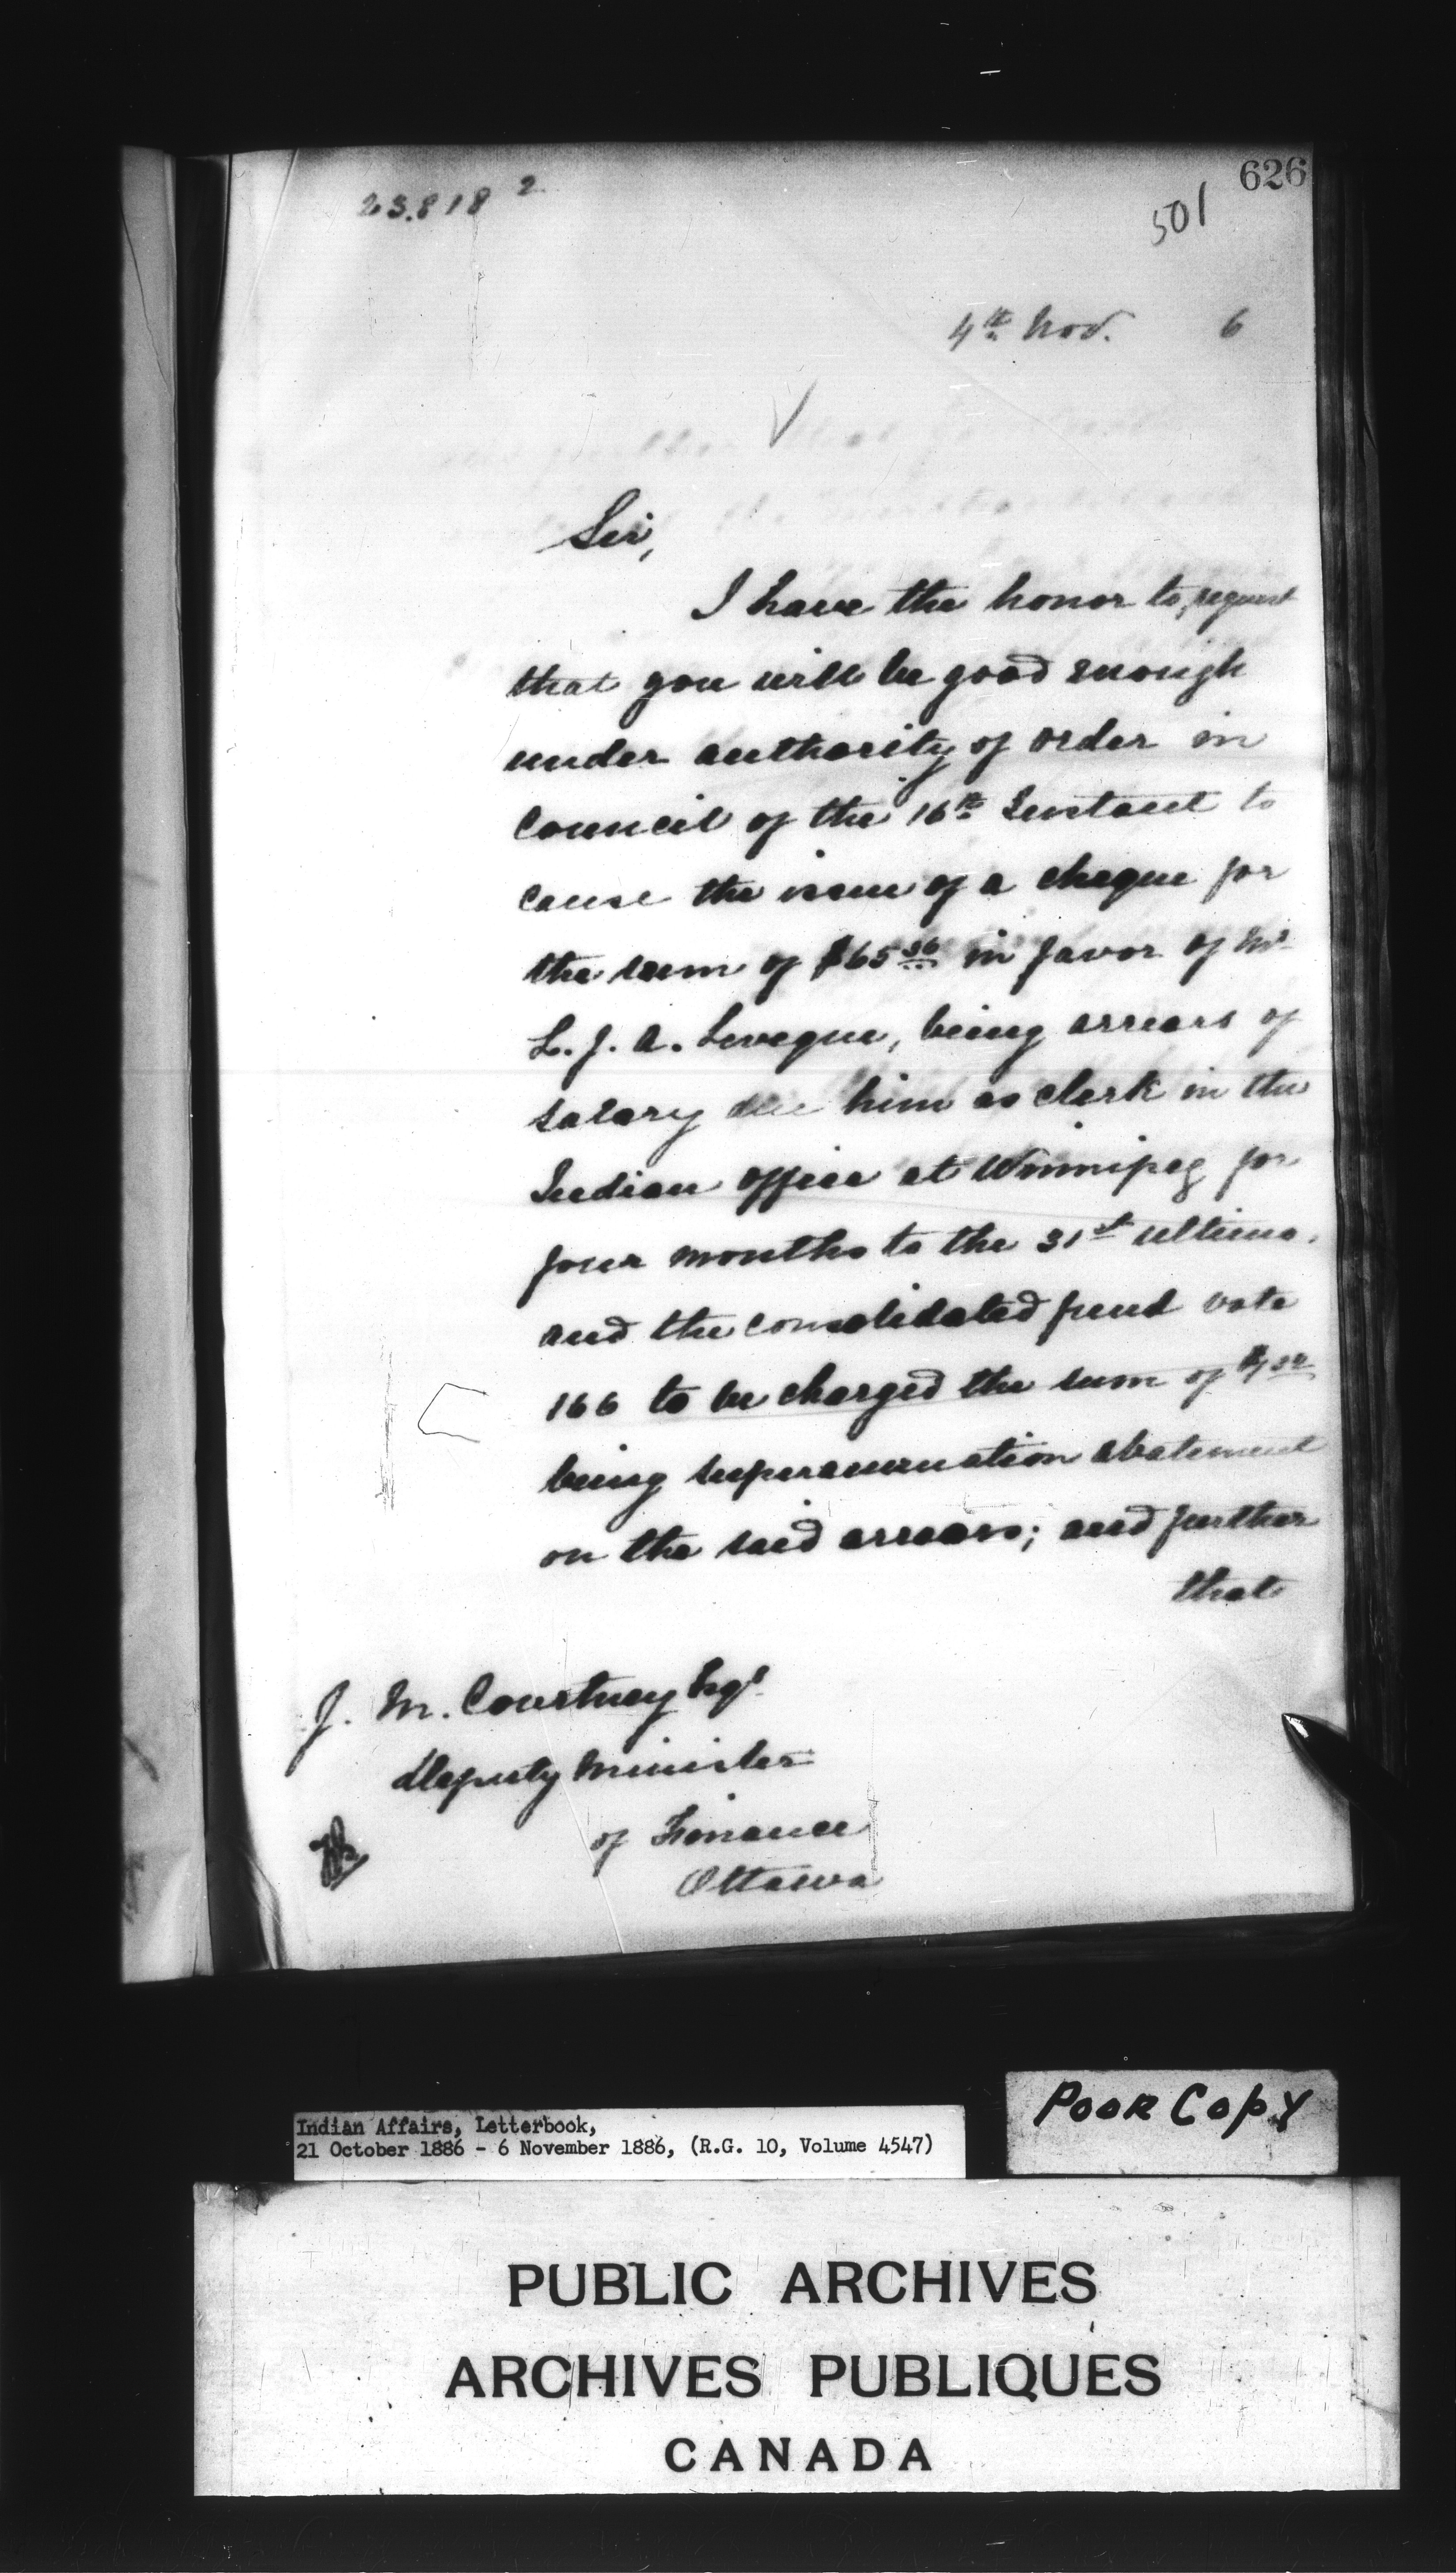 626
23.818 2
501
4th Nov. 6
Sir,
I have the honor to request
that you will be good enough
under authority of order in
Council of the 16th Instant to
cause the issue of a cheque for
the sum of $65 36 in favor of Mr
L. J. A. Leveque, being arrears of
salary due him as clerk in the
Indian office at Winnipeg for
four months to the 31st ultimo.
and the consolidated fund vote
166 to be charged the sum of
being superannuation abatement
on the said arrears; and further
that
J. M. Courtney Esqr
Deputy Minister
of Finance
Ottawa
Poor Copy
Indian Affairs, Letterbook,
21 October 1886 - 6 November 1886, (R.G. 10, Volume 4547)
PUBLIC ARCHIVES
ARCHIVES PUBLIQUES
CANADA